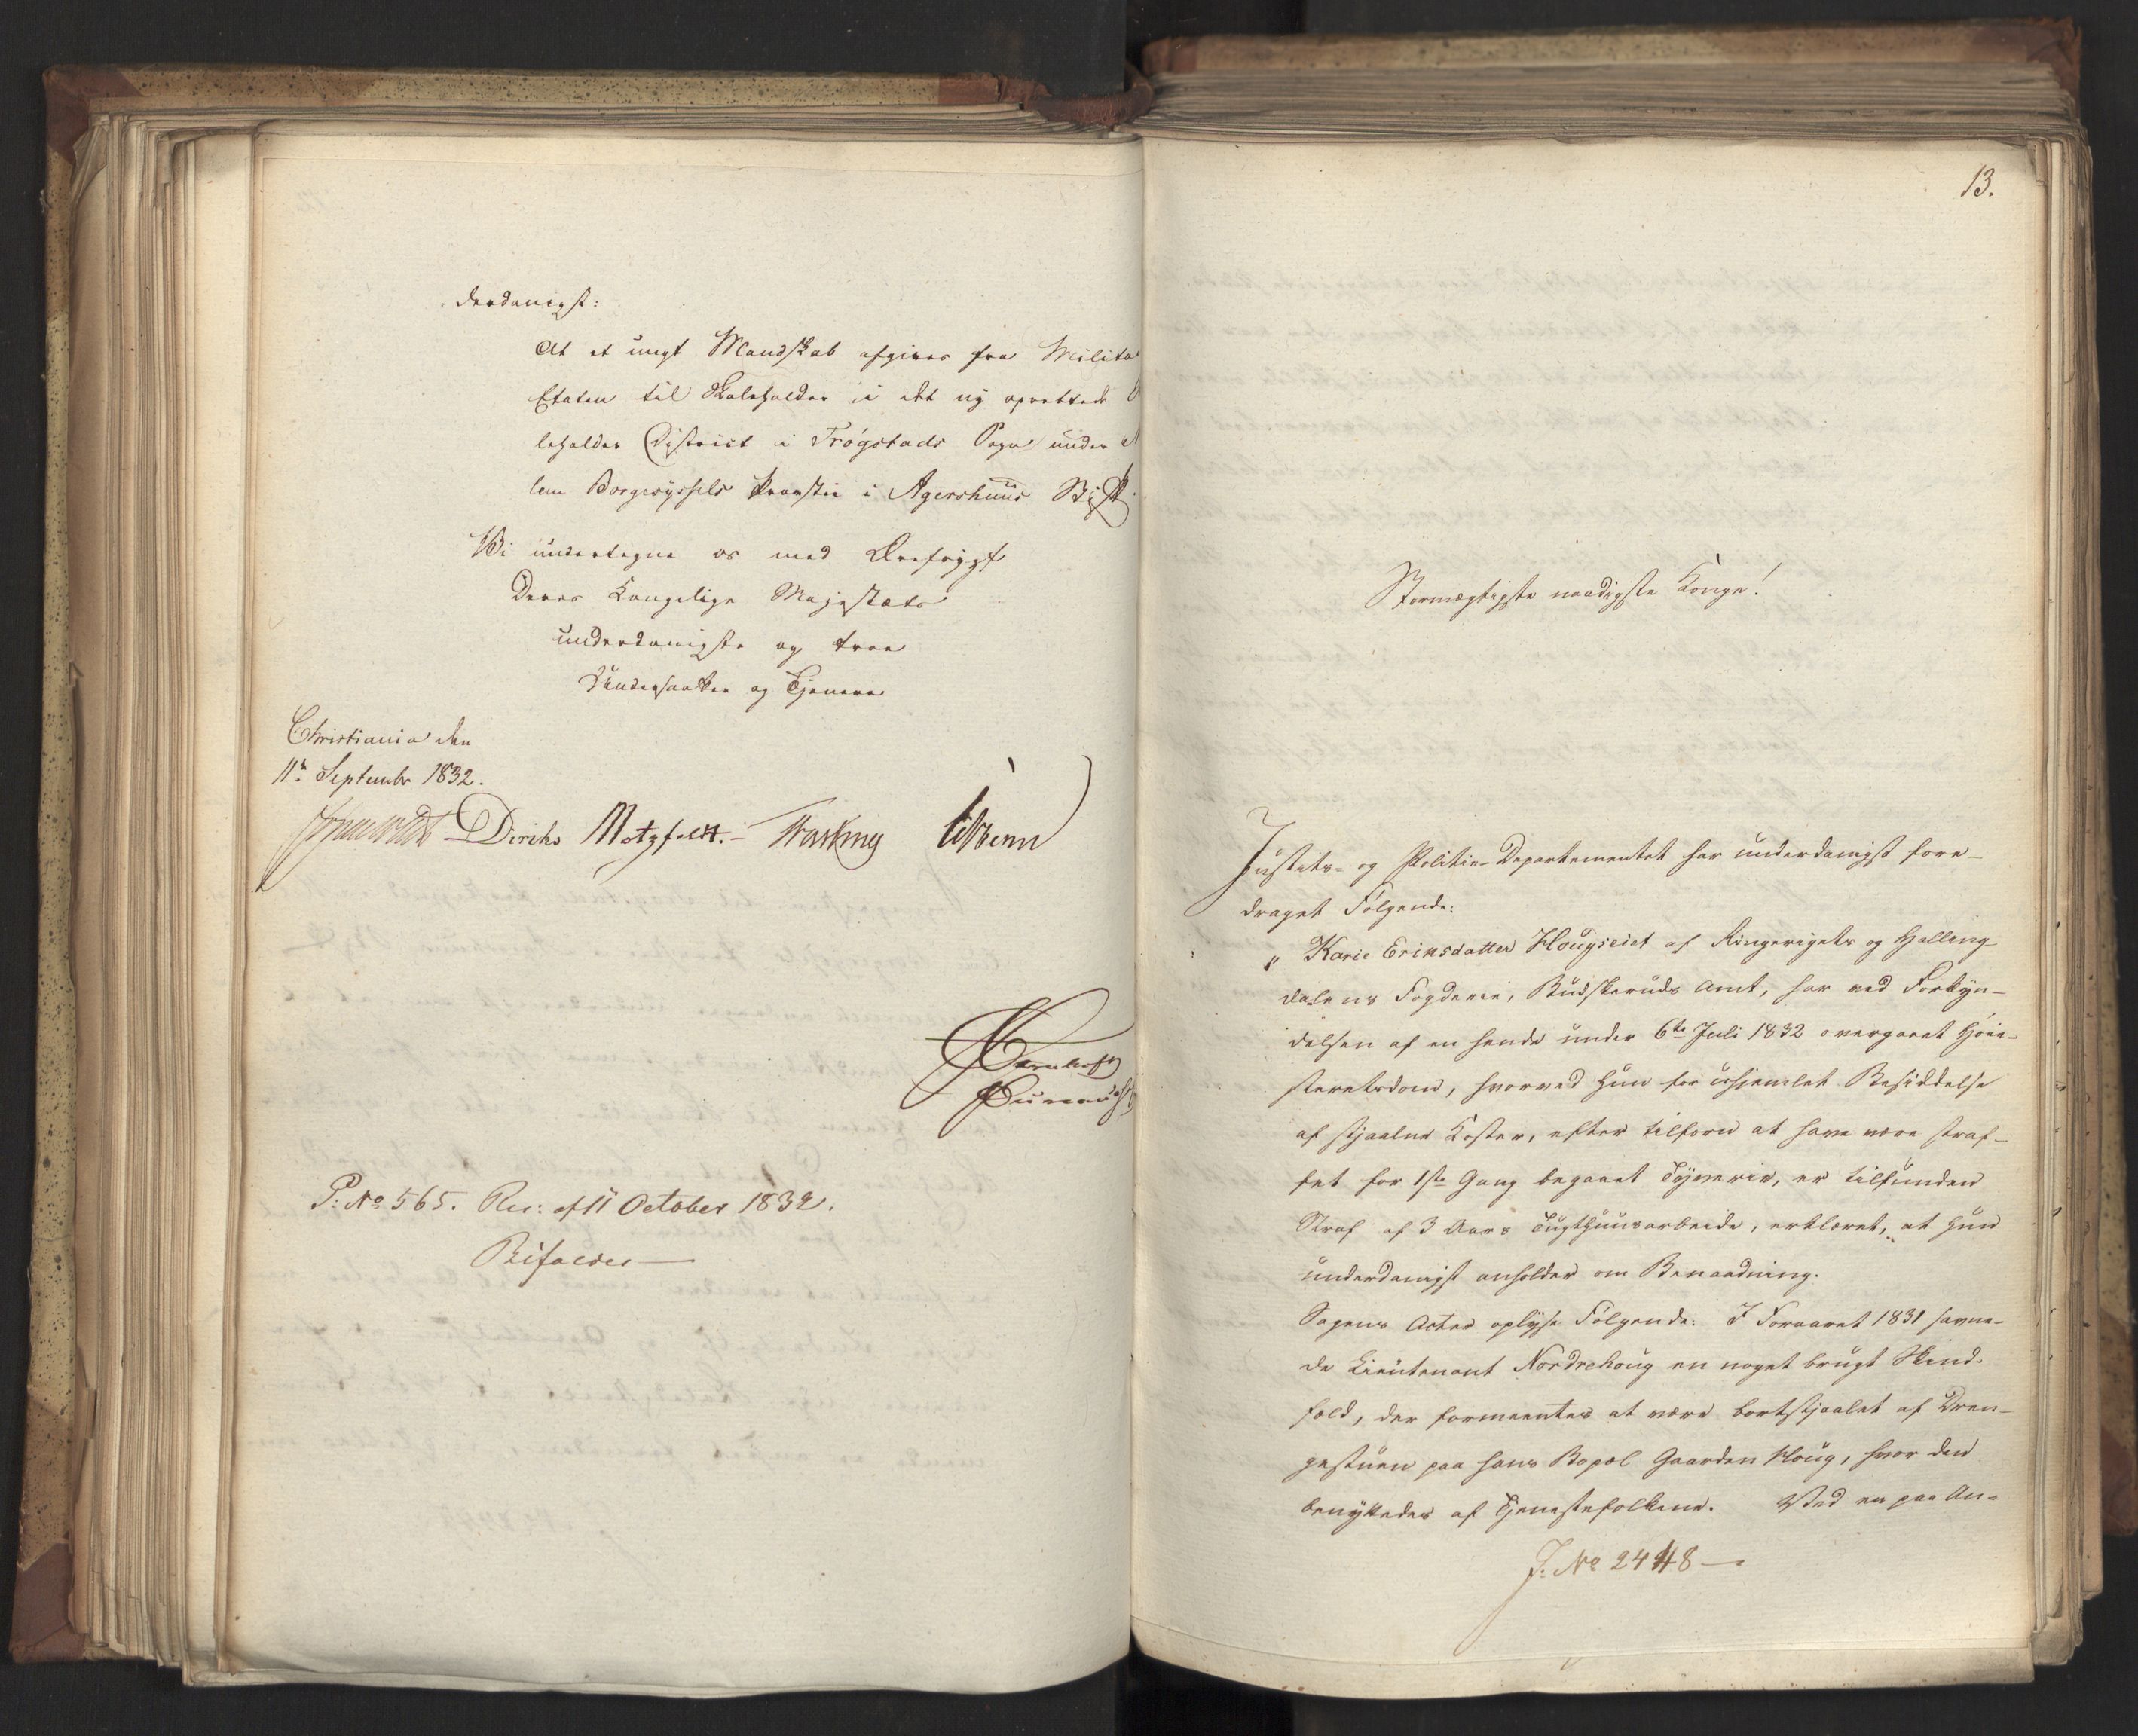 derdanigst:
At et ungt Mandskab afgives fra Militær
Etaten til Skoleholder i det ny oprettede
leholder District i Trøgstads Sogn under
lem Borgesyssels Provstie i Agershuus Stift
Vi undertegne os med Ærefrygt
Deres Kongelige Majestæts
underdanigste og troe
Undersaatter og Tjenere
Christiania den
11te September 1832.
Diriks Motzfeldt. Fasting
P: No 565. Res: af 11 October 1832.
Bifaldes
13.
Stormægtigste naadigste Konge!
Justits- og Politie-Departementet har underdanigst fore-
draget Følgende:
„Karie Eriksdatter Hougseiet af Ringerigets og Halling-
dalens Fogderie, Budskeruds Amt, har ved Forkyn-
delsen af en hende under 6te Juli 1832 overgaaet Høie-
steretsdom, hvorved hun for uhjemlet Besiddelse
af stjaalne Koster, efter tilforn at have være straf-
fet for 1ste Gang begaaet Tyverie, er tilfunden
Straf af 3 Aars Tugthuusarbeide, erklæret, at hun
underdanigst anholder om Benaadning.
Sagens Acter oplyse Følgende: I Foraaret 1831 savne-
de Lieutenant Nordrehoug en noget brugt Skind-
fæld, der formeentes at være bortstjaalet af Dren-
gestuen paa hans Bopæl Gaarden Houg, hvor den
benyttedes af Tjenestefolkene. Ved en paa An-
J. No 2448